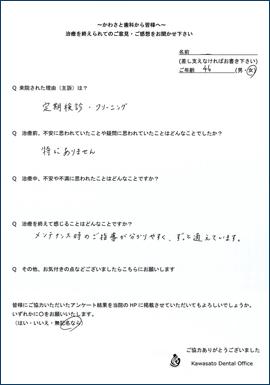 ～かわさと歯科から皆様へ～
治療を終えられてのご意見・ご感想をお聞かせ下さい
名前
(差し支えなければお書き下さい)
ご年齢 44 (男・女)
Q 来院された理由（主訴）は？
定期検診・クリーニング
Q 治療前、不安に思われていたことや疑問に思われていたことはどんなことでしたか？
特にありません
Q 治療中、不安や不満に思われたことはどんなことですか？
Q 治療を終えて感じることはどんなことですか？
メンテナンス時のご指導が分かりやすく、ずっと通えています。
Q その他、お気付きの点などございましたらこちらにお願いします
皆様にご協力いただいたアンケート結果を当院のHPに掲載させていただいてもよろしいでしょうか。
いずれかに〇をお願いいたします。
（はい・いいえ・無記名なら）
ご協力ありがとうございました
Kawasato Dental Office